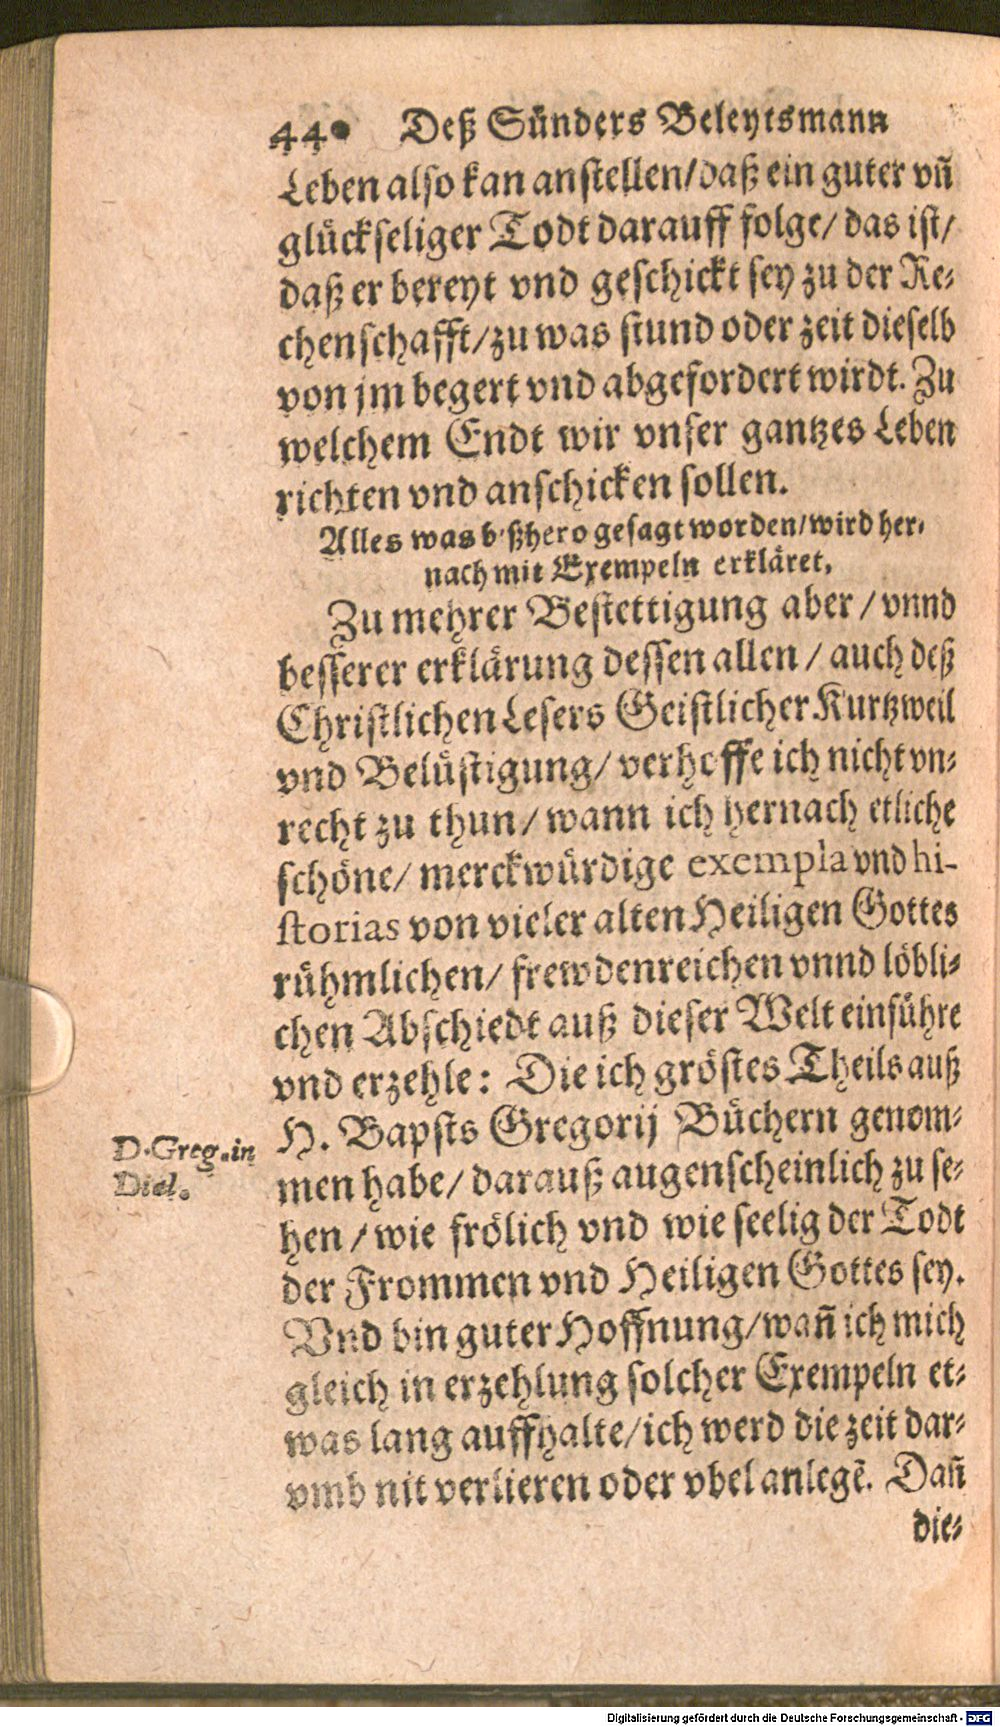 440 Deß Sünders Beleytsmann
Leben also kan anstellen/daß ein guter vñ
glückseliger Todt darauff folge/ das ist/
daß er bereyt vnd geschickt sey zu der Re-
chenschafft/zu was stund oder zeit dieselb
von jm begert vnd abgefordert wirdt. Zu
welchem Endt wir vnser gantzes Leben
richten vnd anschicken sollen.
Alles was bißhero gesagt worden/wird her-
nach mit Exempeln erkläret.
Zu mehrer Bestettigung aber / vnnd
besserer erklärung dessen allen / auch deß
Christlichen Lesers Geistlicher Kurtzweil
vnd Belüstigung/ verhoffe ich nicht vn-
recht zu thun/ wann ich hernach etliche
schöne/ merckwürdige exempla vnd hi-
storias von vieler alten Heiligen Gottes
rühmlichen/ frewdenreichen vnnd löbli-
chen Abschiedt auß dieser Welt einführe
vnd erzehle: Die ich gröstes Theils auß
H. Bapsts Gregorij Büchern genom-
D. Greg. in
Dial.
men habe/ darauß augenscheinlich zu se-
hen / wie frölich vnd wie seelig der Todt
der Frommen vnd Heiligen Gottes sey.
Vnd bin guter Hoffnung/wañ ich mich
gleich in erzehlung solcher Exempeln et-
was lang auffhalte/ich werd die zeit dar-
vmb nit verlieren oder vbel anlegẽ. Dañ
die-
Digitalisierung gefördert durch die Deutsche Forschungsgemeinschaft - DFG